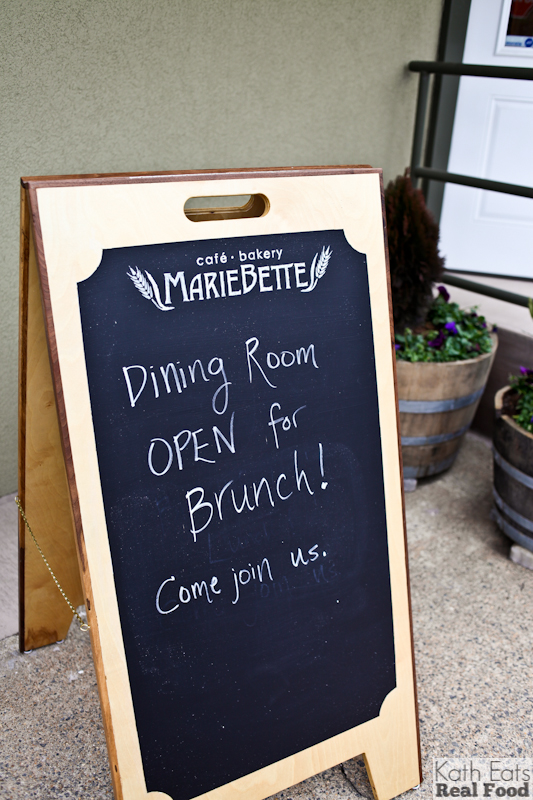 café · bakery
MARIEBETTE
Dining Room
OPEN for
Brunch!
Come join us.
Kath Eats
Real Food